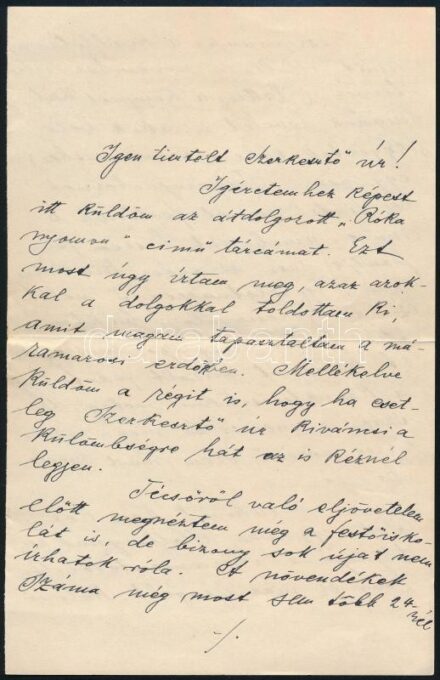 Igen tisztelt Szerkesztő úr!
Igéretemhez képest
itt küldöm az átdolgozott „Róka
nyomon" című tárcámat. Ezt
most úgy írtam meg, azaz azok-
kal a dolgokkal toldottam ki,
amit magam tapasztaltam a má-
ramarosi erdőkben. Mellékelve
küldöm a régit is, hogy ha eset-
leg Szerkesztő úr kiváncsi a
külömbségre hát az is kéznél
legyen.
Técsőről való eljövetelem
előtt megnéztem még a festőisko-
lát is, de bizony sok újat nem
írhatok róla. A növendékek
száma még most sem több 24-
nél
-/.
darabanth